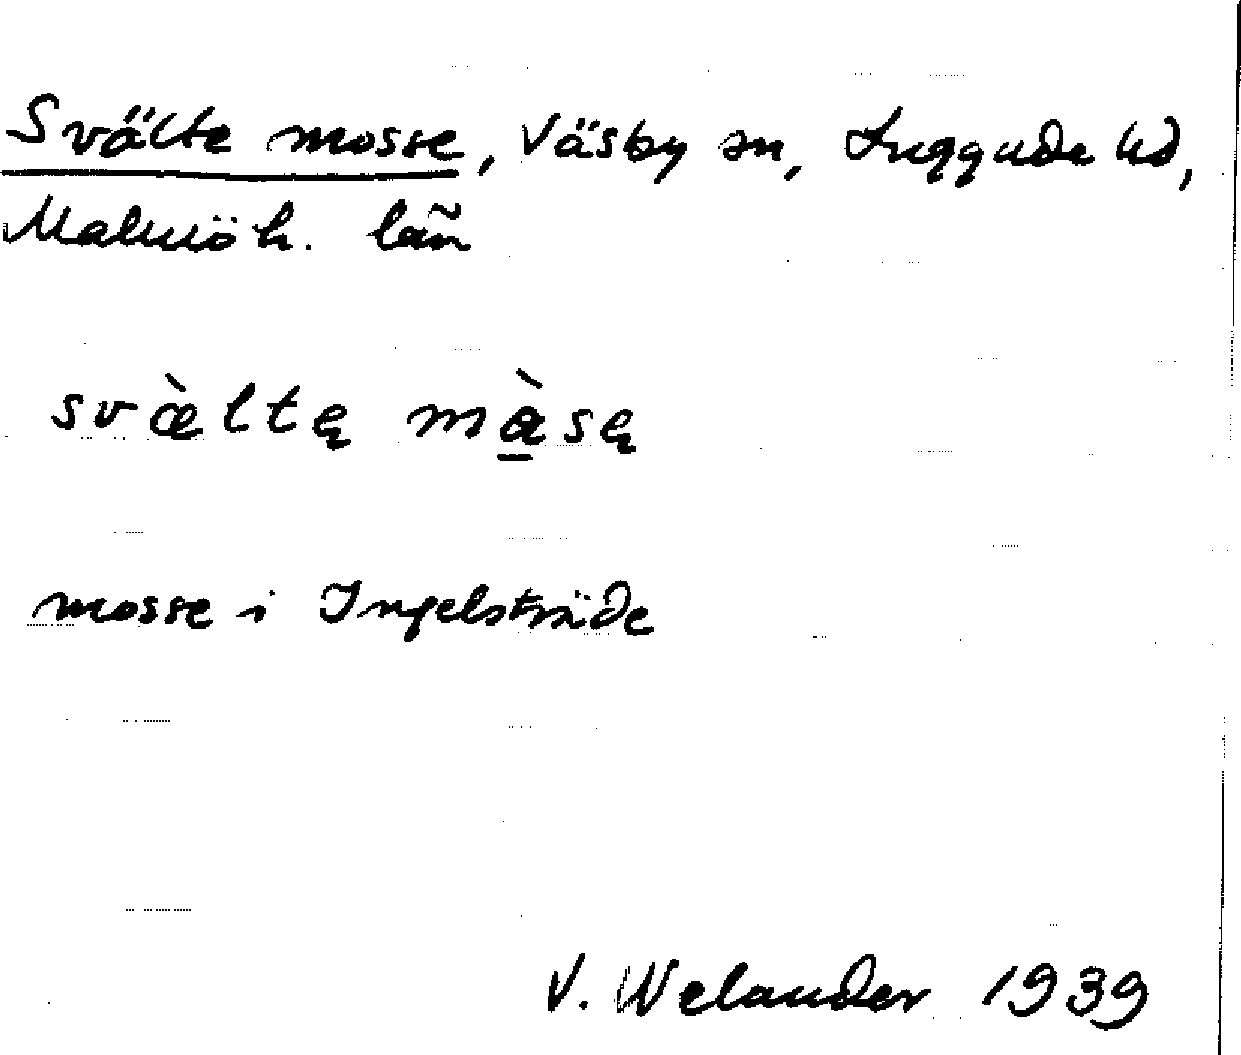 Svälte mosse, Väsby sn, Luggude hd,
Malmöh. län
svæ̀ltę mạ̱̀sę
mosse i Ingelsträde
V. Welander 1939